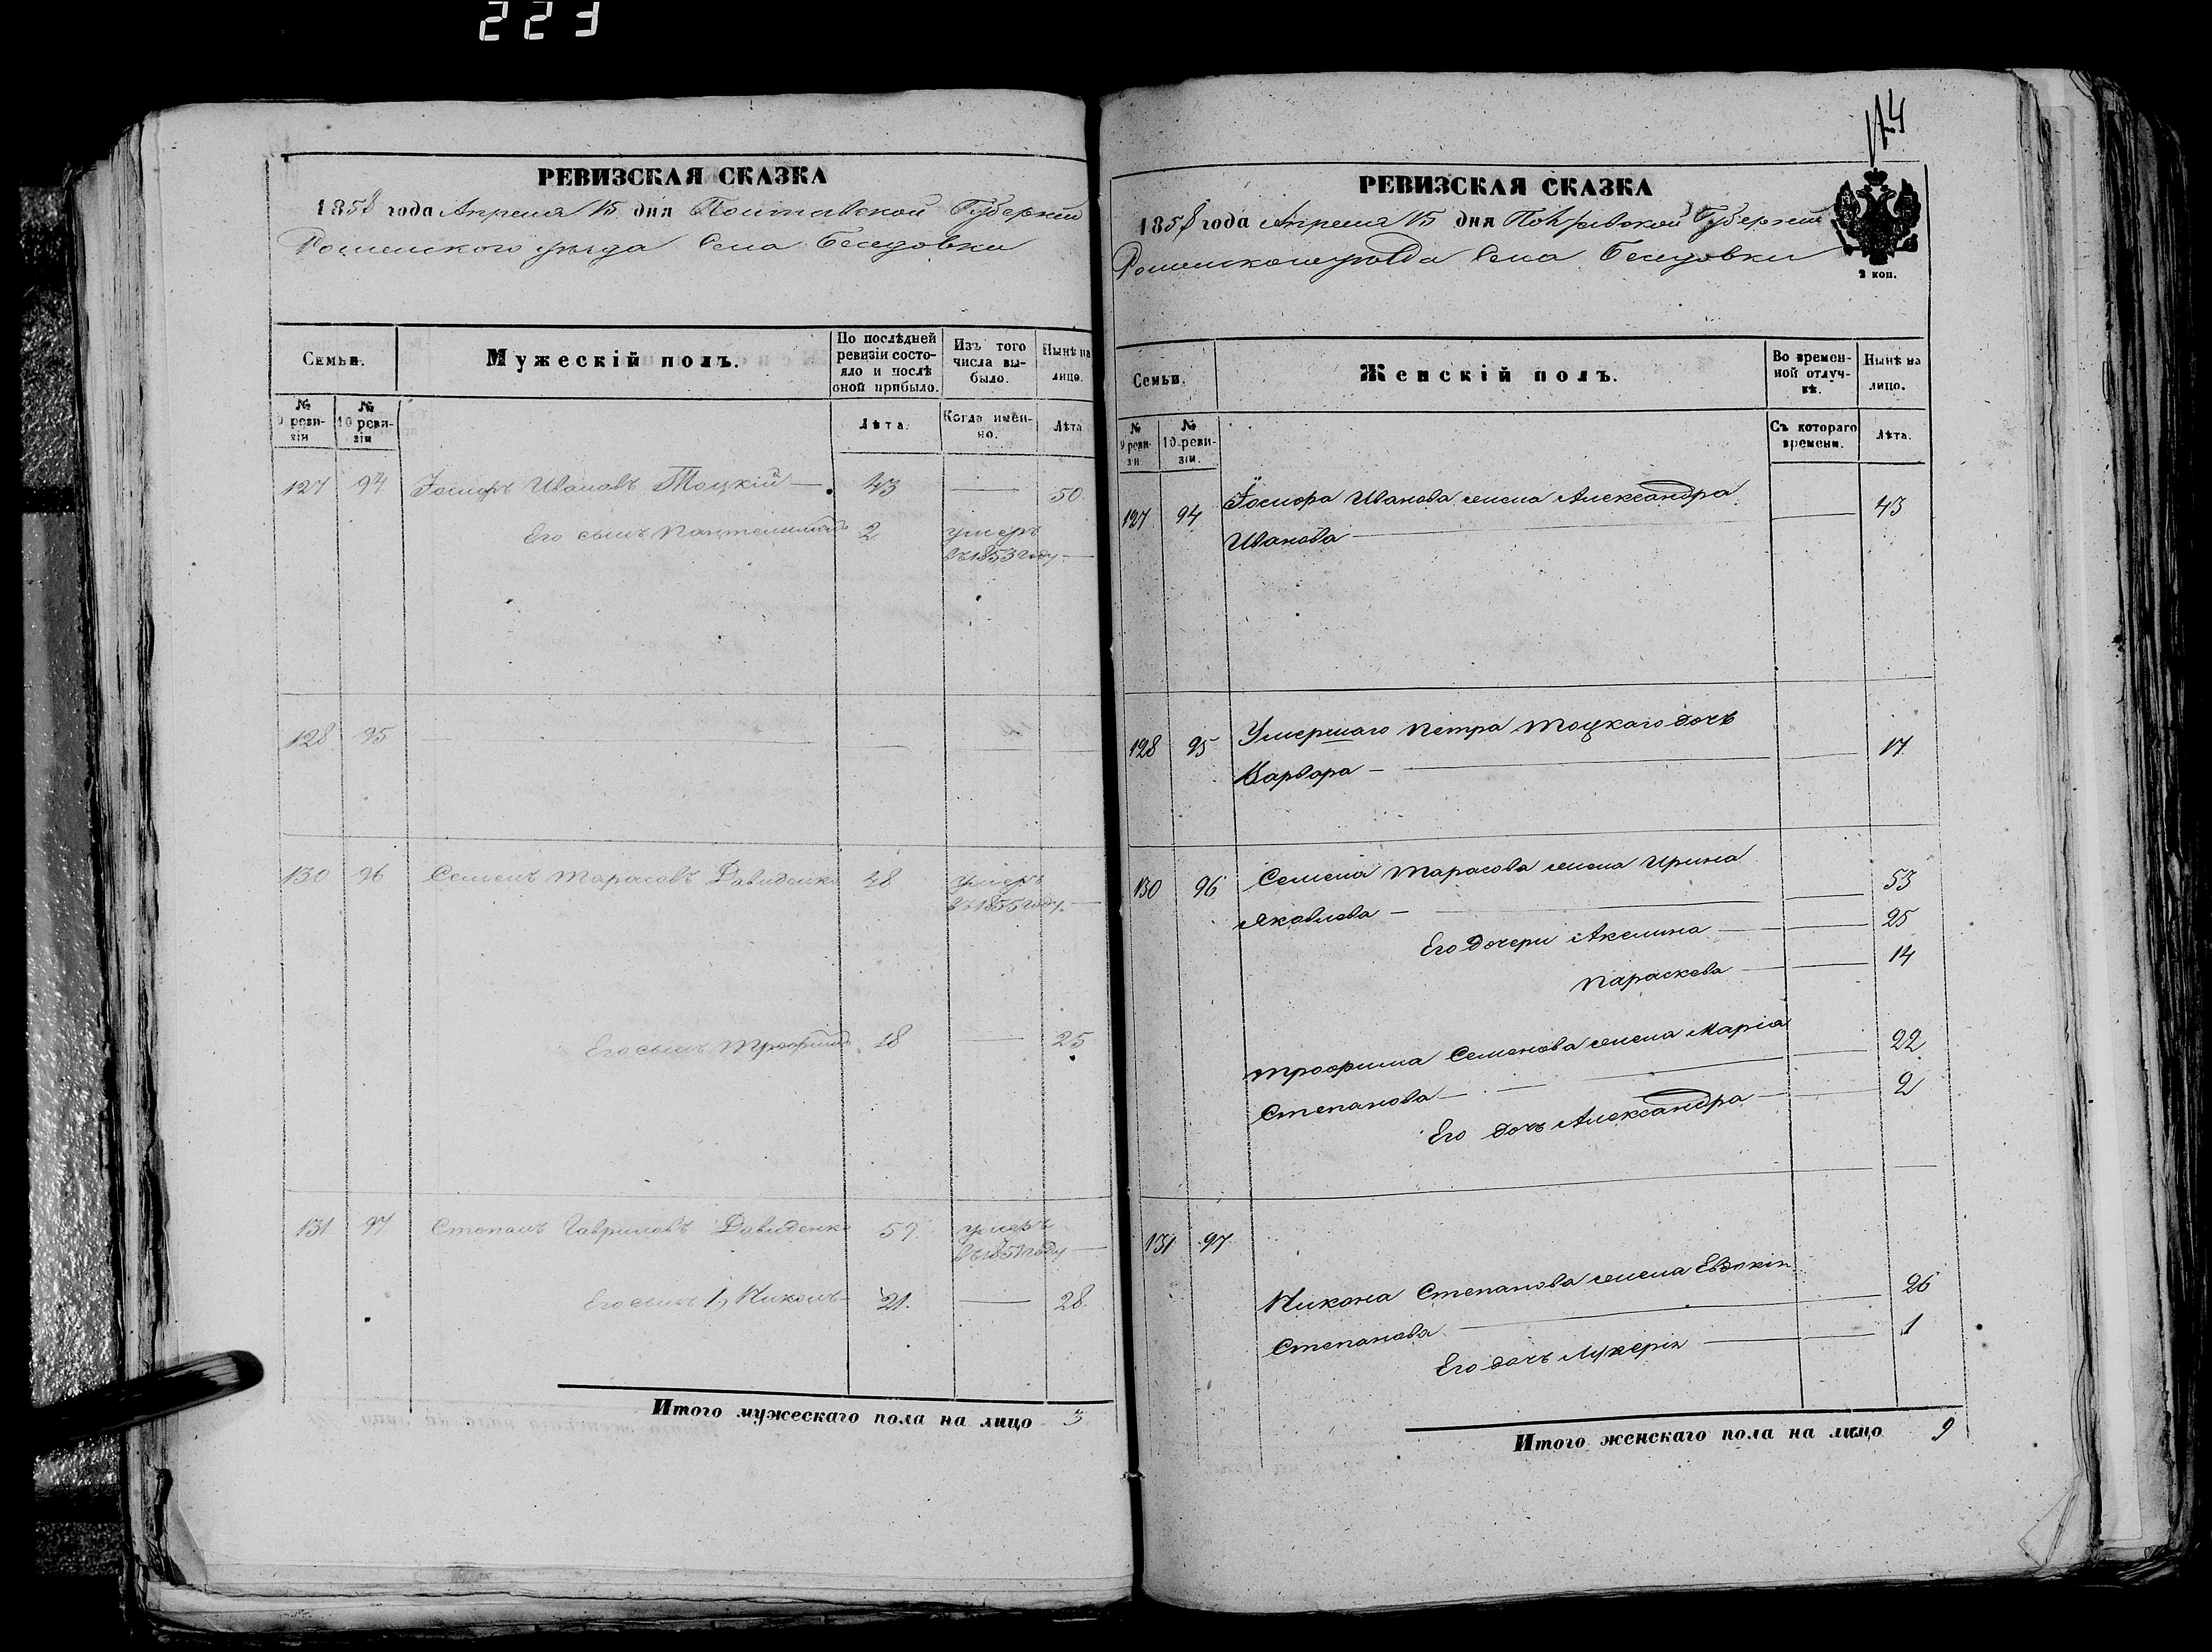 223
РЕВИЗСКАЯ СКАЗКА
1858 года Апреля 15 дня Полтавской Губерніи
Роменского уѣзда Села Беседовки
Семьи.
Мужескій полъ.
По послѣдней ревизіи состояло и послѣ оной прибыло.
Изъ того числа выбыло.
Нынѣ на лицо.
№ 9 ревизіи
№ 10 ревизіи
Лѣта.
Когда именно.
Лѣта
127 94 Іосифъ Ивановъ Тоцкій — 43 — 50.
Его сынъ Пантелимонъ 2 умеръ
въ 1853 году —
128 95 — — — —
130 96 Семенъ Тарасовъ Давиденко 48 умеръ
въ 1855 году. —
Его сынъ Трофимъ 18 — 25
131 97 Степанъ Гавриловъ Давиденко 57. умеръ
въ 1851 году —
Его сынъ 1, Никонъ — 21. — 28.
Итого мужескаго пола на лицо 3
174
РЕВИЗСКАЯ СКАЗКА
1858 года Апреля 15 дня Полтавской Губерніи
Роменского уѣзда Села Беседовки
2 коп.
Семьи.
Женскій полъ.
Во временной отлучкѣ.
Нынѣ на лицо.
№ 9 ревизіи
№ 10 ревизіи.
Съ котораго времени.
Лѣта.
127 94 Іосифа Иванова жена Александра
Иванова — — 43
128 95 Умершаго Петра Тоцкаго дочь
Варвара — — 17.
130 96 Семена Тарасова жена Ирина
Яковлева — — 53
Его дочери Акелина — — 25
Параскева — — 14
Трофима Семенова жена Марія
Степанова — — 22
Его дочь Александра — — 2
131 97
Никона Степанова жена Евдокія
Степанова — 26
Его дочь Лукерія — 1
Итого женскаго пола на лицо 9